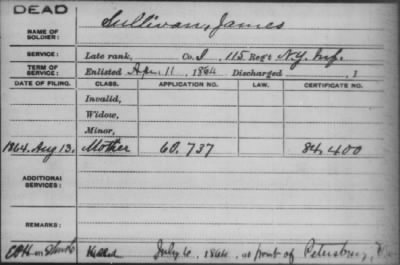 DEAD
NAME OF SOLDIER: Sullivan, James
SERVICE: Late rank, Co. I, 115 Reg't N.Y. Inf.
TERM OF SERVICE: Enlisted Apr. 11, 1864 Discharged , 1
DATE OF FILING. CLASS. APPLICATION NO. LAW. CERTIFICATE NO.
Invalid,
Widow,
Minor,
1864 Aug 13. Mother 60.737 84,400
ADDITIONAL SERVICES:
REMARKS:
Killed July 6, 1864, at front of Petersburg,